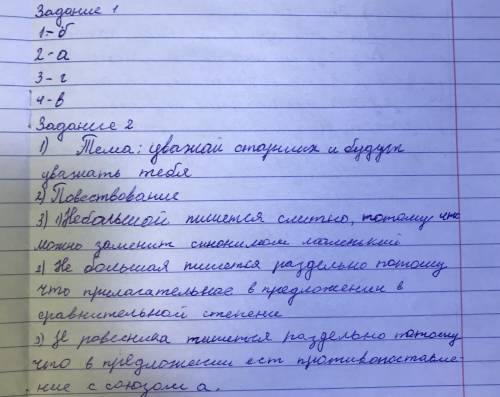 Задание 1
1-б
2-а
3-г
4-в
Задание 2
1) Тема: уважай старших и будут
уважать тебя
2) Повествование
3) 1) Небольшой пишется слитно, потому что
можно заменит синонимом маленький
2) Не большая пишется раздельно потому
что прилагательное в предложении в
сравнительной степение
3) Не ровесника пишеться раздельно потому
что в предложении ест противопоставле-
ние с союзом а.